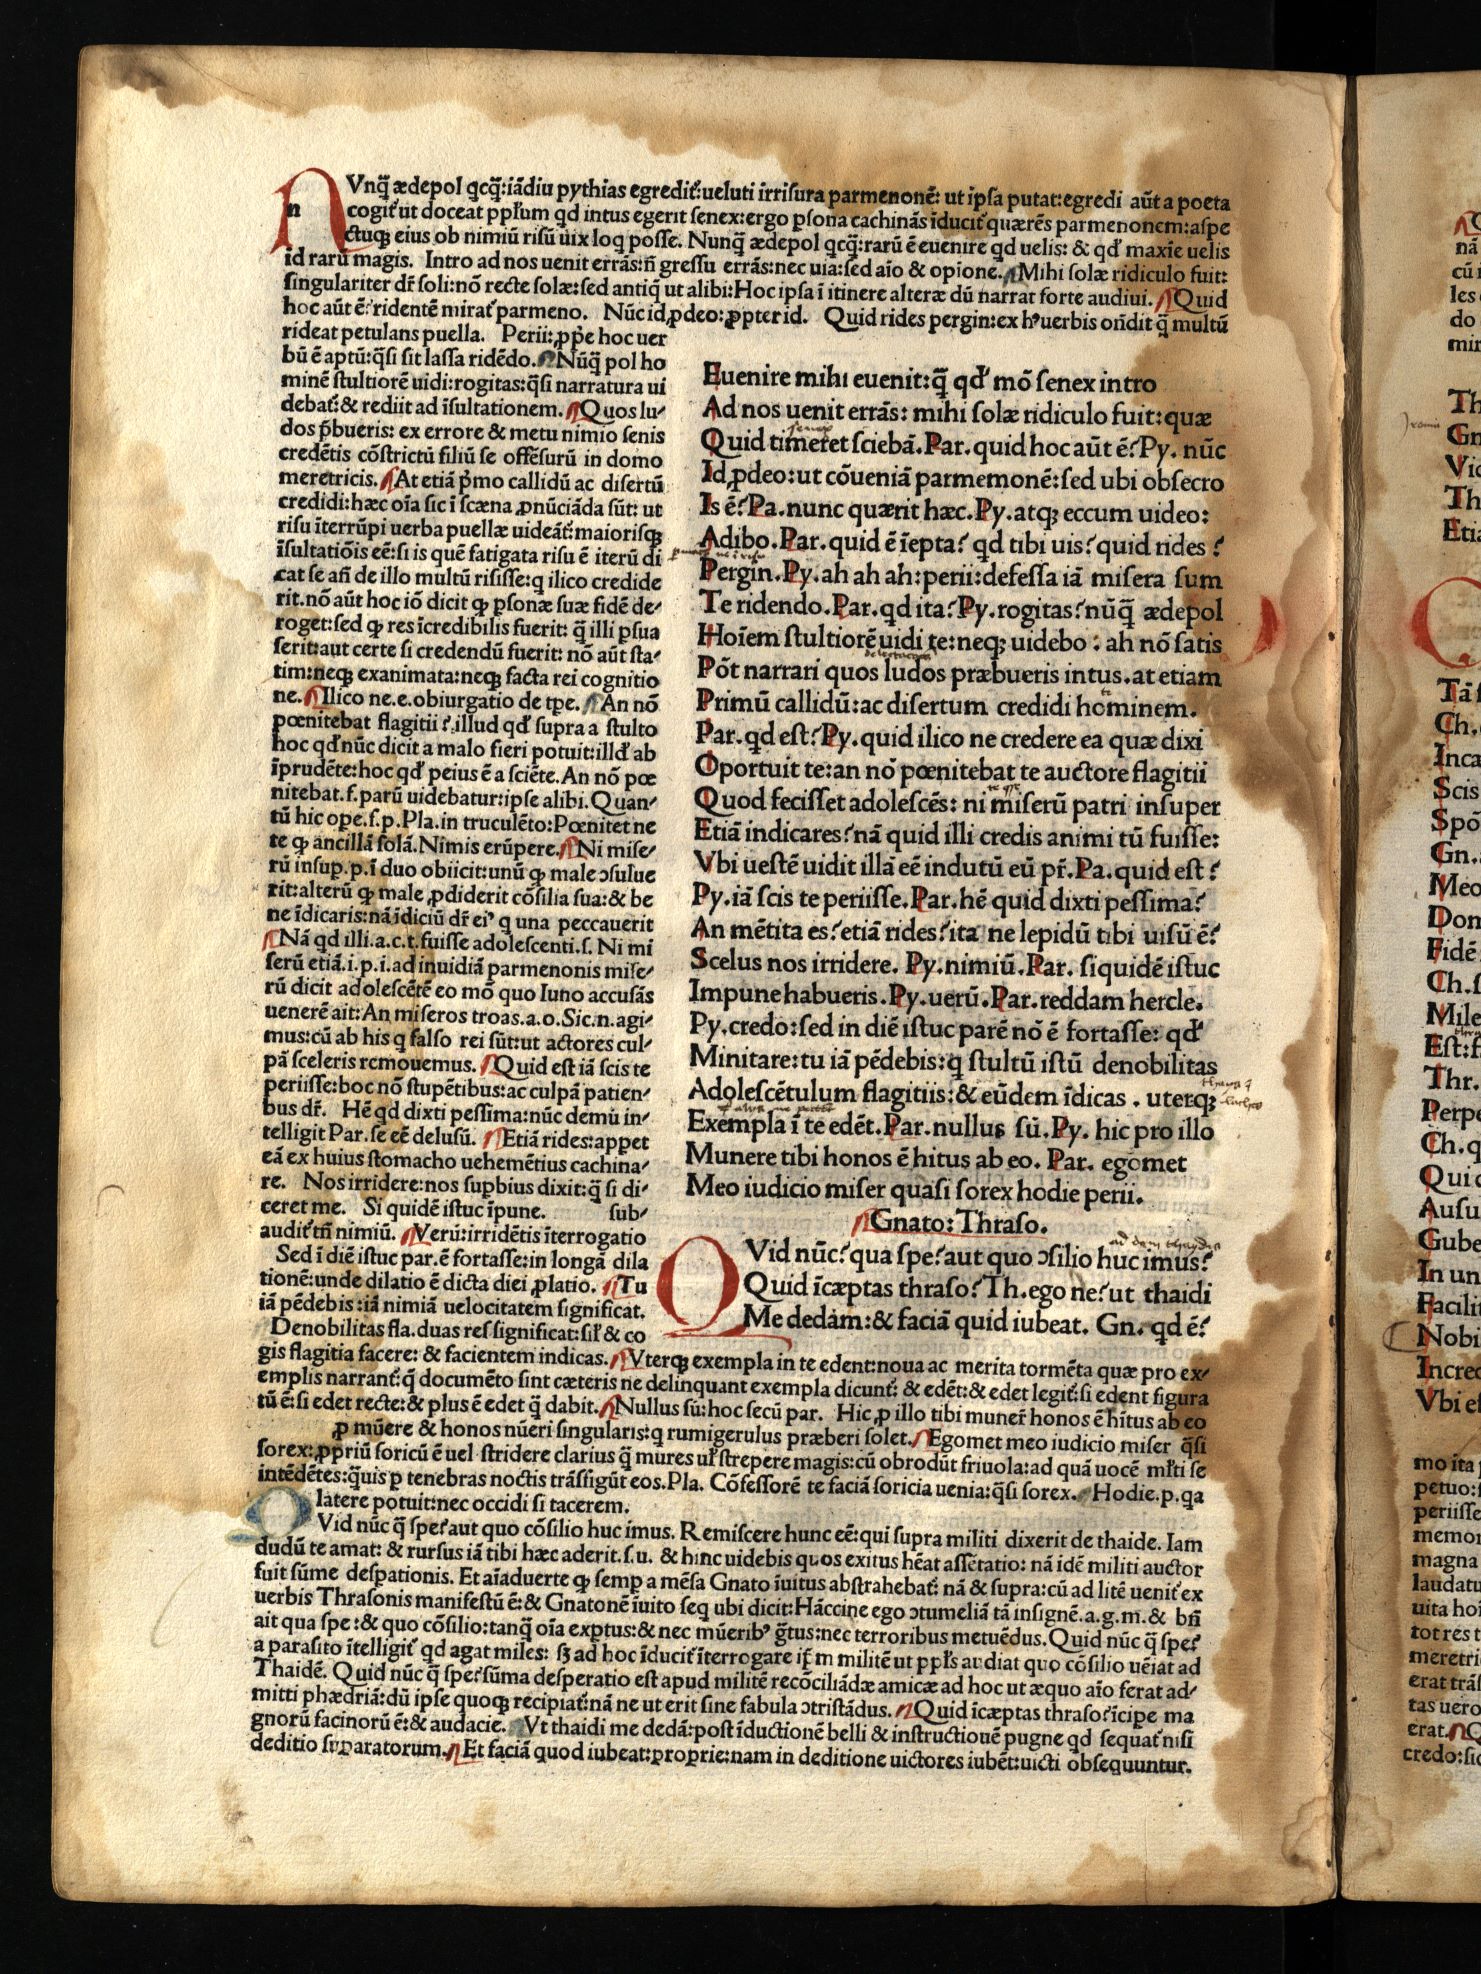 Vnq̃ ædepol qcq̃:iādiu pythias egredit᷑:ueluti irrisura parmenonē: ut ipsa putat:egredi aūt a poeta
n cogit᷑ ut doceat pp̄lum qd intus egerit senex:ergo p̱sona cachinās īducit᷑ quærēs parmenonem:aspe
ctuqȝ eius ob nimiū risū uix loq̱ posse. Nunq̃ ædepol qcq̃:rarū ē euenire qd uelis: & qd' maxīe uelis
id rarū magis. Intro ad nos uenit errās:n̄ gressu errās:nec uia:sed aīo & opione. Mihi solæ ridiculo fuit:
singulariter dr̄ soli:nō recte solæ:sed antiq̄ ut alibi:Hoc ipsa ī itinere alteræ dū narrat forte audiui. Quid
hoc aūt ē? ridentē mirat᷑ parmeno. Nūc id ꝓdeo: ꝓpter id. Quid rides pergin:ex hꝰ uerbis on̄dit q̃ multū
rideat petulans puella. Perii: ꝓpe hoc uer
bū ē aptū:q̃si sit lassa ridēdo. Nūq̃ pol ho
minē stultiorē uidi:rogitas:q̃si narratura ui
debat᷑:& rediit ad īsultationem. Quos lu-
dos p̄bueris: ex errore & metu nimio senis
credētis cōstrictū filiū se offēsurū in domo
meretricis. At etiā p̄mo callidū ac disertū
credidi:hæc oīa sic ī scæna ꝓnūciāda sūt: ut
risu īterrūpi uerba puellæ uideāt᷑:maiorisqȝ
īsultatiōis eē:si is quē fatigata risu ē iterū di
cat se añ de illo multū risisse:q ilico credide
rit.nō aūt hoc iō dicit ꝙ p̱sonæ suæ fidē de-
roget:sed ꝙ res īcredibilis fuerit: q̃ illi p̱sua
serit:aut certe si credendū fuerit: nō aūt sta-
tim:neqȝ exanimata:neqȝ facta rei cognitio
ne. Ilico ne.e.obiurgatio de tp̄e. An nō
pœnitebat flagitii?.illud qd' supra a stulto
hoc qd' nūc dicit a malo fieri potuit:illd' ab
īprudēte:hoc qd' peius ē a sciēte. An nō pœ
nitebat.s.parū uidebatur:ipse alibi. Quan-
tū hic ope.s.p. Pla.in truculēto: Pœnitet ne
te ꝙ ancillā solā. Nimis erūpere. Ni mise-
rū insup.p.ī duo obiicit:unū ꝙ male ↄsulue
rit:alterū ꝙ male ꝓdiderit cōsilia sua:& be
ne īdicaris:nā īdiciū dr̄ eiꝰ q una peccauerit
Nā qd illi.a.c.t.fuisse adolescenti.s. Ni mi
serū etiā.i.p.i.ad inuidiā parmenonis mise-
rū dicit adolescētē eo mō quo Iuno accusās
uenerē ait:An miseros troas.a.o.Sic.n.agi-
mus:cū ab his q falso rei sūt:ut actores cul-
pā sceleris remouemus. Quid est iā scis te
periisse:hoc nō stupētibus:ac culpā patien-
bus dr̄. Hē qd dixti pessima:nūc demū in-
telligit Par.se eē delusū. Etiā rides:appet
eā ex huius stomacho uehemētius cachina-
re. Nos irridere:nos sup̱bius dixit:q̃ si di-
ceret me. Si quidē istuc īpune. sub-
audit᷑ tn̄ nimiū. Verū:irridētis īterrogatio
Sed ī diē istuc par.ē fortasse:in longā dila
tionē:unde dilatio ē dicta diei ꝓlatio. Tu
iā pēdebis:iā nimiā uelocitatem significat.
Denobilitas fla.duas res significat:sil̄ & co
Euenire mihi euenit:q̃ qd' mō senex intro
Ad nos uenit errās: mihi solæ ridiculo fuit:quæ
senex
Quid timeret sciebā.Par.quid hoc aūt ē? Py. nūc
Id ꝓdeo:ut cōueniā parmemonē:sed ubi obsecro
Is ē? Pa.nunc quærit hæc.Py.atqȝ eccum uideo:
Adibo.Par.quid ē īepta? qd tibi uis? quid rides?
Pergin.Py.ah ah ah:perii:defessa iā misera sum
Te ridendo.Par.qd ita? Py.rogitas? nūq̃ ædepol
Hoīem stultiorē uidi te:neqȝ uidebo: ah nō satis
Pōt narrari quos ludos præbueris intus.at etiam
te
Primū callidū:ac disertum credidi hominem.
Par.qd est? Py.quid ilico ne credere ea quæ dixi
Oportuit te:an nō pœnitebat te auctore flagitii
Quod fecisset adolescēs: ni miserū patri insuper
Etiā indicares? nā quid illi credis animi tū fuisse:
Vbi uestē uidit illā eē indutū eū pr̄.Pa.quid est?
Py.iā scis te periisse.Par.hē quid dixti pessima?
An mētita es? etiā rides? ita ne lepidū tibi uisū ē?
Scelus nos irridere. Py.nimiū.Par. siquidē istuc
Impune habueris.Py.uerū.Par.reddam hercle.
Py.credo:sed in diē istuc parē nō ē fortasse: qd'
Minitare:tu iā pēdebis:q stultū istū denobilitas
Adolescētulum flagitiis:& eūdem īdicas . uterqȝ
Exempla ī te edēt.Par.nullus sū.Py. hic pro illo
Munere tibi honos ē hitus ab eo. Par. egomet
Meo iudicio miser quasi sorex hodie perii.
Gnato: Thraso.
Q Vid nūc? qua spe? aut quo ↄsilio huc imus?
Quid īcæptas thraso? Th.ego ne? ut thaidi
Me dedam:& faciā quid iubeat. Gn. qd ē?
gis flagitia facere: & facientem indicas. Vterqȝ exempla in te edent:noua ac merita tormēta quæ pro ex-
emplis narrant᷑:q̃ documēto sint cæteris ne delinquant exempla dicunt᷑: & edēt:& edet legit᷑:si edent figura
tū ē:si edet recte:& plus ē edet q̃ dabit. Nullus sū:hoc secū par. Hic ꝓ illo tibi muner̄ honos ē hītus ab eo
ꝓ mūere & honos nūeri singularis:q rumigerulus præberi solet. Egomet meo iudicio miser q̃si
sorex:ꝓpriū soricū ē uel stridere clarius q̃ mures ul̄ strepere magis:cū obrodūt friuola:ad quā uocē ml̄ti se
intēdētes:q̃uis p̱ tenebras noctis trāsfigūt eos.Pla. Cōfessorē te faciā soricia uenia:q̃si sorex. Hodie.p.qa
latere potuit:nec occidi si tacerem.
Q Vid nūc q̃ spe? aut quo cōsilio huc imus. Remiscere hunc eē:qui supra militi dixerit de thaide. Iam
dudū te amat: & rursus iā tibi hæc aderit.s.u. & hinc uidebis quos exitus hēat assētatio: nā idē militi auctor
fuit sūme desp̱ationis. Et aīaduerte ꝙ semp̱ a mēsa Gnato īuitus abstrahebat᷑: nā & supra:cū ad litē uenit᷑ ex
uerbis Thrasonis manifestū ē:& Gnatonē īuito seq ubi dicit:Hāccine ego ↄtumeliā tā insignē.a.g.m.& bn̄
ait qua spe:& quo cōsilio:tanq̄ oīa exptus:& nec mūeribꝰ g̃tus:nec terroribus metuēdus. Quid nūc q̃ spe?
a parasito ītelligit᷑ qd agat miles: sȝ ad hoc īducit᷑ īterrogare ip̄m militē ut ppl̄s audiat quo cōsilio uēiat ad
Thaidē. Quid nūc q̃ spe? sūma desperatio est apud militē recōciliādæ amicæ ad hoc ut æquo aīo ferat ad-
mitti phædriā:dū ipse quoqȝ recipiat᷑:nā ne ut erit sine fabula ↄtristādus. Quid īcæptas thraso? īcipe ma
gnorū facinorū ē:& audacie. Vt thaidi me dedā:post īductionē belli & instructiouē pugne qd sequat᷑ nisi
deditio suparatorum. Et faciā quod iubeat:proprie:nam in deditione uictores iubēt:uicti obsequuntur.